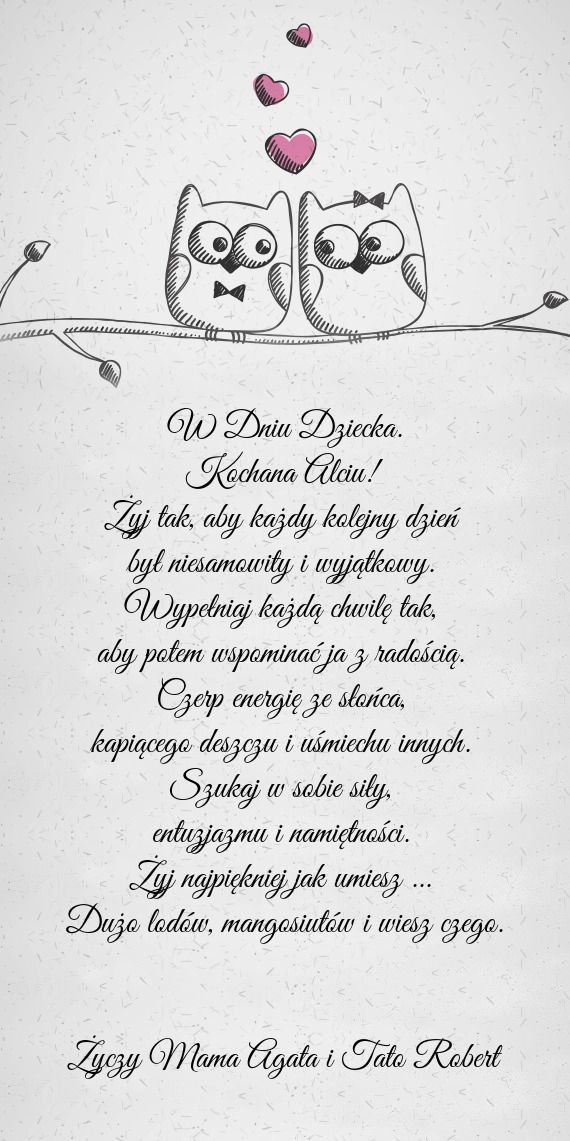 W Dniu Dziecka.
Kochana Alciu!
Żyj tak, aby każdy kolejny dzień
był niesamowity i wyjątkowy.
Wypełniaj każdą chwilę tak,
aby potem wspominać ja z radością.
Czerp energię ze słońca,
kapiącego deszczu i uśmiechu innych.
Szukaj w sobie siły,
entuzjazmu i namiętności.
Żyj najpiękniej jak umiesz ...
Dużo lodów, mangosiutów i wiesz czego.
Życzy Mama Agata i Tato Robert